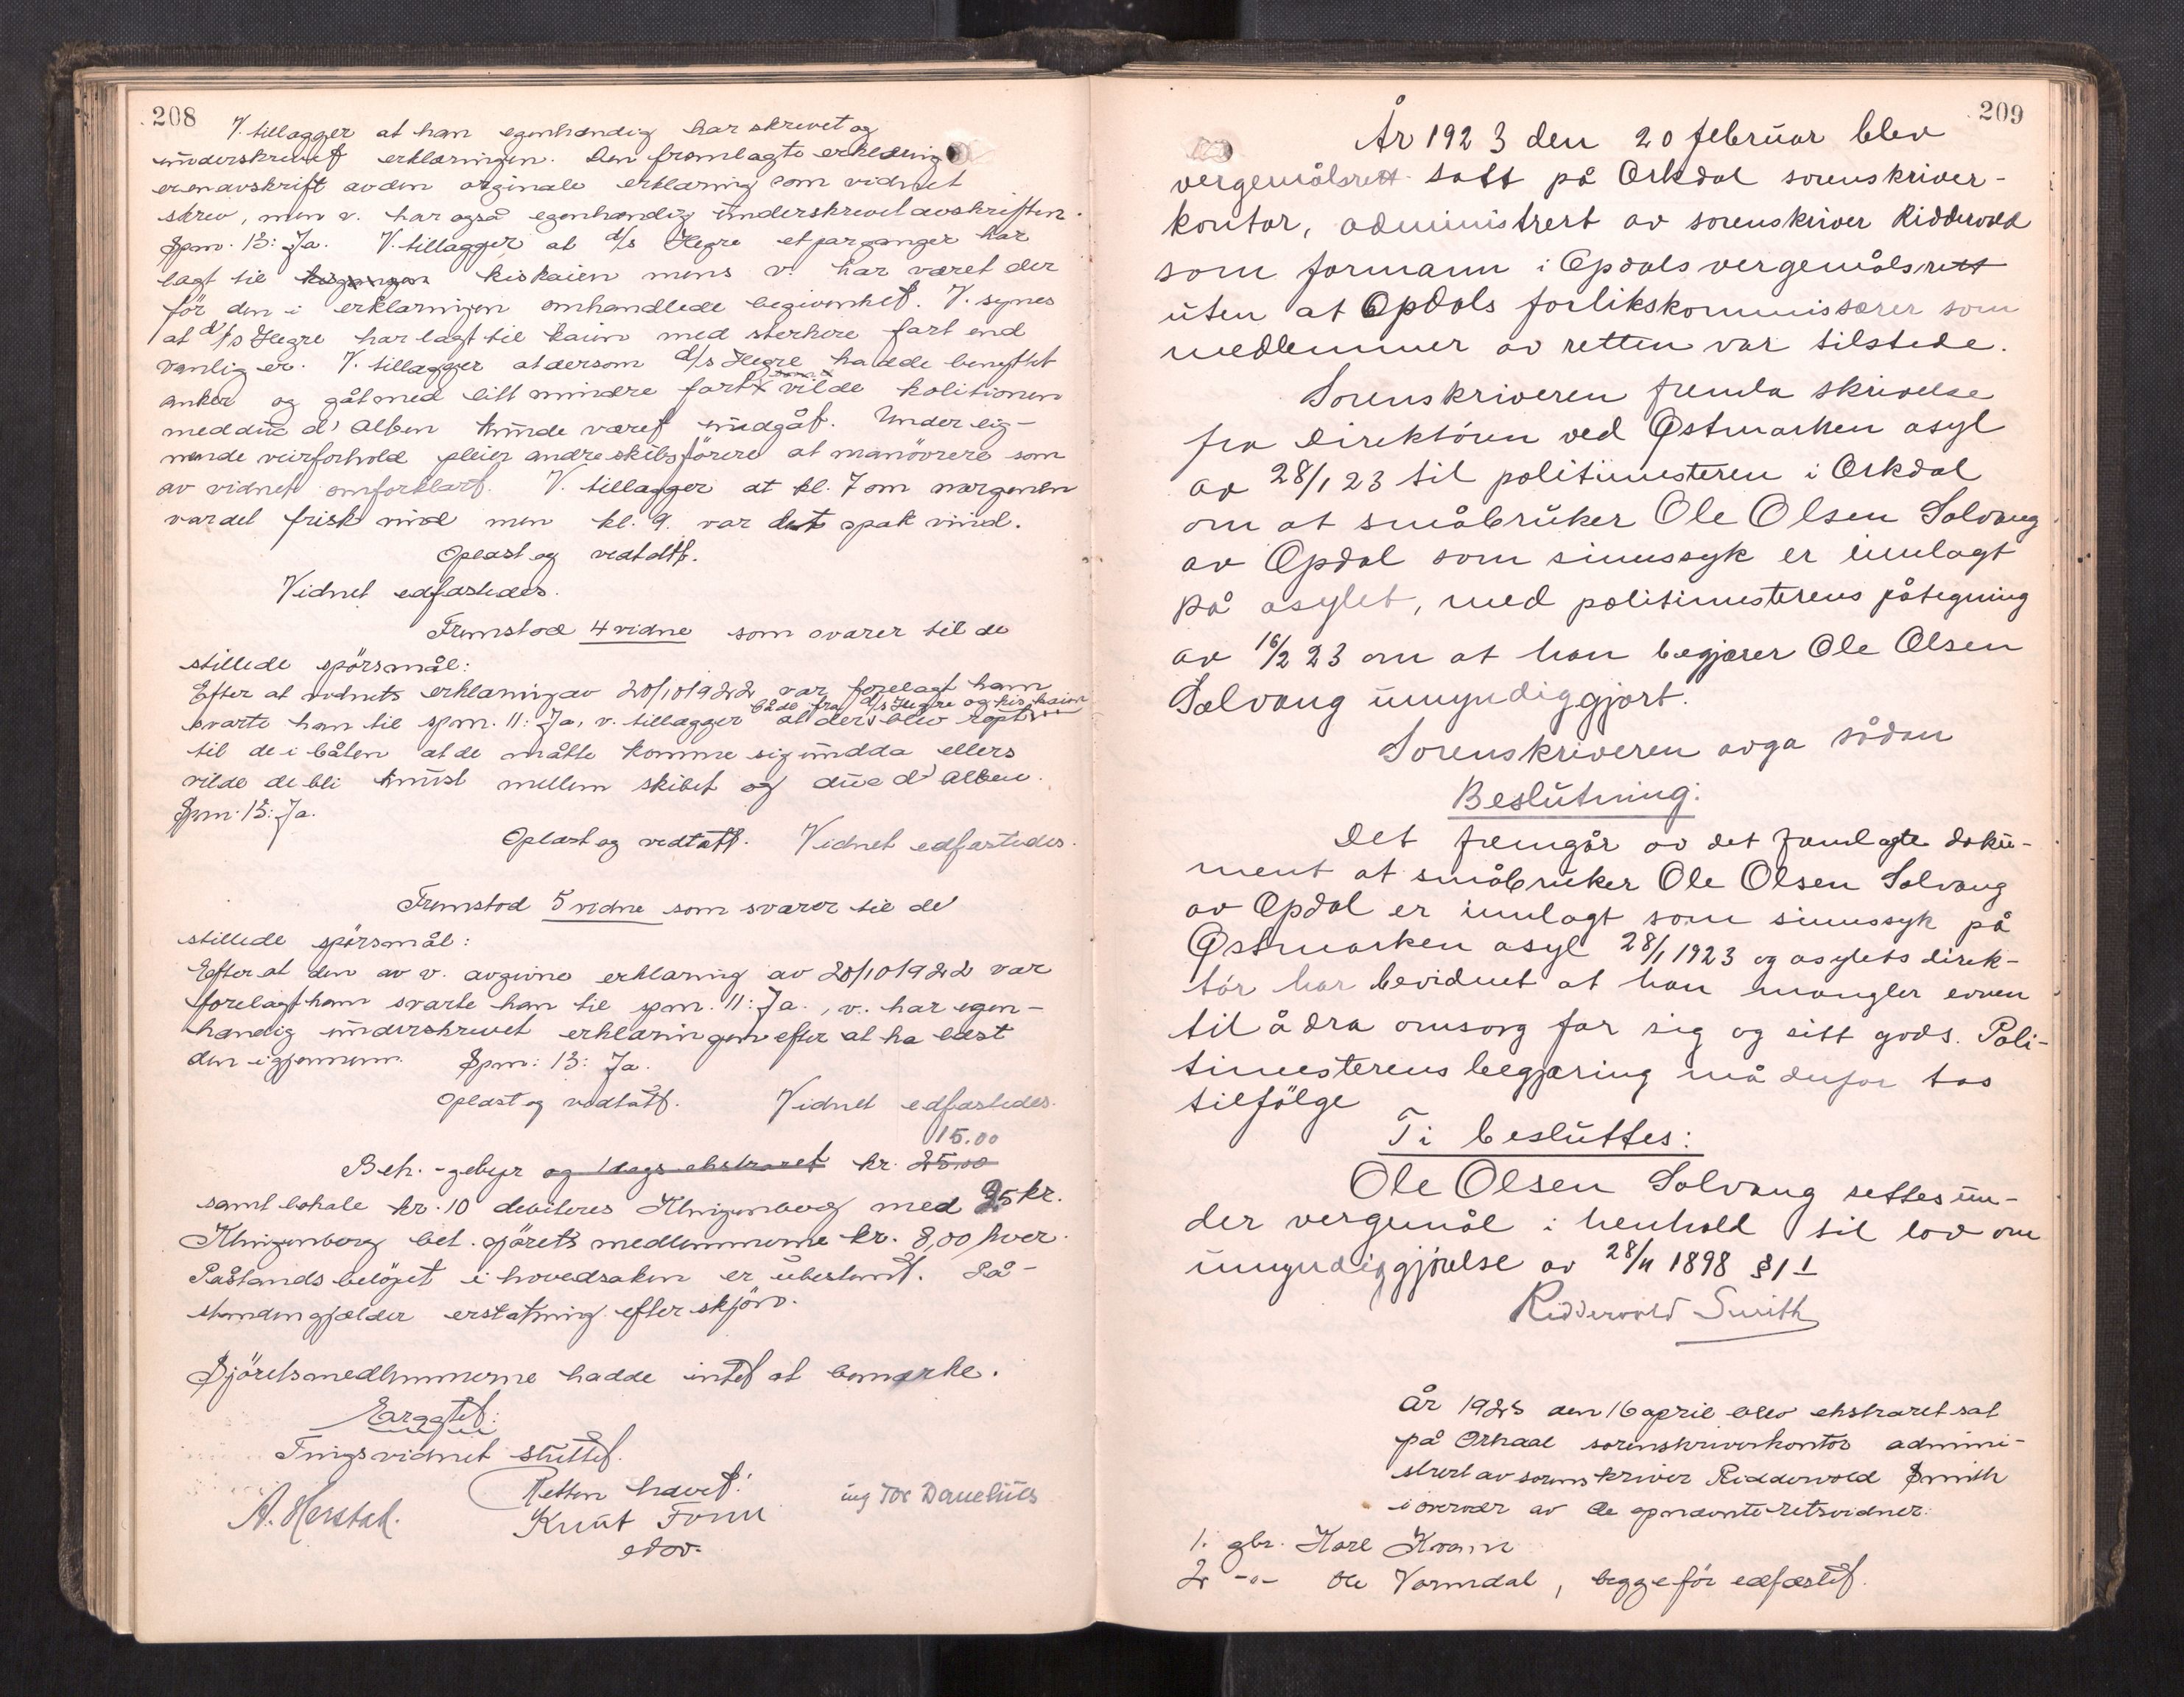 208
V. tillægger at han egenhændig har skrevet og
underskrevet erklæringen. Den fremlagte erklæring
er en avskrift av den orginale erklæring som vidnet
skrev, men v. har også egenhændig underskrevet avskriften.
Spm. 13: Ja. V. tillægger at d/s Hegre et par ganger har
lagt til kiskaien mens v. har været der
før den i erklæringen omhandlede begivenhet. V. synes
at d/s Hegre har lagt til kaien med sterkere fart end
vanlig er. V. tillægger at dersom d/s Hegre hadde benyttet
anker og gåt med litt mindre fart vilde kolitionen
med duc d'Alben kunde været undgåt. Under lig-
nende veirforhold pleier andre skibsförere at manövrere som
av vidnet omforklart. V. tillægger at kl. 7 om morgenen
var det frisk vind men kl. 9. var det spak vind.
Oplæst og vedtatt.
Vidnet edfæstedes.
Fremstod 4 vidne som svarer til de
stillede spörsmål:
Efter at vidnets erklæring av 20/10 1922 var forelagt ham
både fra d/s Hegre og kiskaien
svarte han til spm. 11: Ja, v. tillægger at der blev ropt
til de i båten at de måtte komme sig undda ellers
vilde de bli knust mellem skibet og duc d'Alben.
Spm. 13: Ja.
Oplæst og vedtatt. Vidnet edfæstedes.
Fremstod 5 vidne som svarer til de
stillede spörsmål:
Efter at den av v. avgivne erklæring av 20/10 1922 var
forelagt ham svarte han til spm. 11: Ja., v. har egen-
hændig underskrevet erklæringen efter at ha læst
den igjennem. Spm: 13: Ja.
Oplæst og vedtatt. Vidnet edfæstedes.
15.00
Beh.-gebyr og 1 dags ekstraret kr. 25.00
samt lokale kr. 10 debiteres Klingenberg med 25 kr.
Klingenberg bet. sjörets medlemmerne kr. 8,00 hver.
Påstandsbelöpet i hovedsaken er ubestemt. På-
standen gjælder erstatning efter skjön.
Sjöretsmedlemmerne hadde intet at bemærke.
Tingsvidnet sluttet.
Retten hævet.
A. Herstad. Knut Fonn
edsv.
209
År 1923 den 20 februar blev
vergemålsrett satt på Orkdal sorenskriver-
kontor, administrert av sorenskriver Ridderwold
som formann i Opdals vergemålsrett
uten at Opdals forlikskommissærer som
medlemmer av retten var tilstede.
Sorenskriveren fremla skrivelse
fra direktören ved Østmarken asyl
av 28/1 23 til politimesteren i Orkdal
om at småbruker Ole Olsen Solvang
av Opdal som sinnssyk er innlagt
på asylet, med politimesterens påtegning
av 16/2 23 om at han begjærer Ole Olsen
Solvang umyndiggjort.
Sorenskriveren avga sådan
Beslutning:
Det fremgår av det fremlagte doku-
ment at småbruker Ole Olsen Solvang
av Opdal er innlagt som sinnssyk på
Østmarken asyl 28/1 1923 og asylets direk-
tör har bevidnet at han mangler evnen
til å dra omsorg for sig og sitt gods. Poli-
timesterens begjæring må derfor tas
tilfölge
Ti besluttes:
Ole Olsen Solvang settes un-
der vergemål i henhold til lov om
umyndiggjörelse av 28/11 1898 § 1 1
Ridderwold Smith
År 1923 den 16 april blev ekstraret sat
på Orkdal sorenskriverkontor admini-
strert av sorenskriver Ridderwold Smith
i overvær av de opnævnte retsvidner:
1. gbr. Karl Kvam
2 -"- Ole Vormdal, begge för edfæstet.